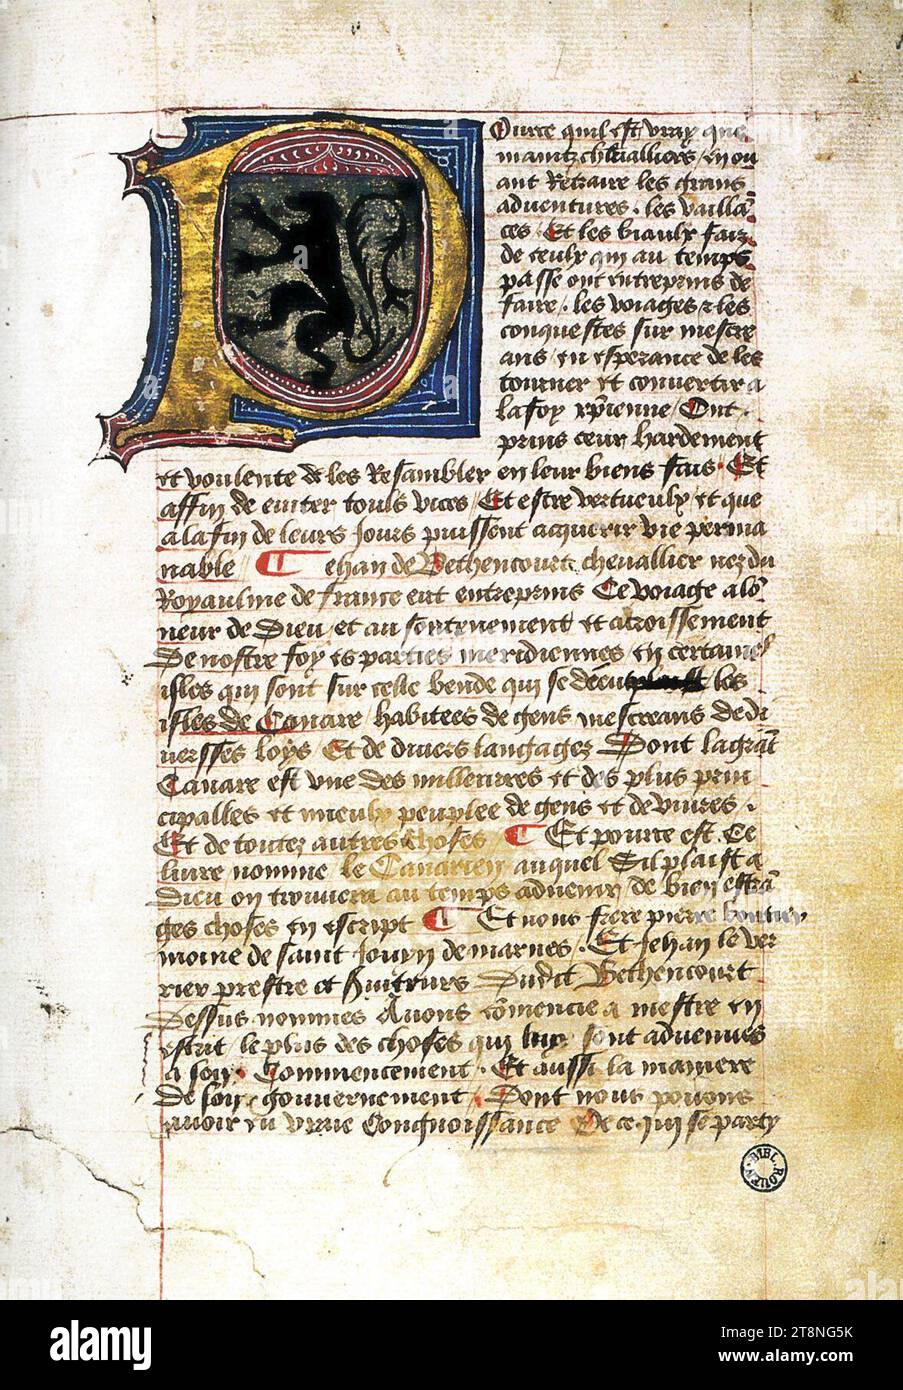 Pource quil est vray que
maintz chevalliers en ou
ant Retraire les grans
adventures . les vailla
ces . Et les biaulx faiz
de ceulx qui au temps
passe ont entreprins de
faire . les voiages & les
conquestes sur mescre
ans en esperance de les
tourner et convertir a
la foy xpienne / Ont
prins ceur hardement
et voulente de les Resambler en leur biens fais . Et
affin de eviter touls vices / Et estre vertueulx et que
a la fin de leurs jours puissent acquerir vie perma
nable ¶ Jehan de Bethencourt chevallier nez du
Royaulme de france eut entreprins Ce voiage a lo
neur de Dieu et au soutenement et acroissement
De nostre foy es parties meridiennes en certaines
isles qui sont sur celle bende qui se les
isles de Canare habitees de gens mescreans de di
versses loys Et de divers langages Dont la grat
Canare est une des millieures et des plus prin
cipalles et mieulx peuplee de gens et de vivres .
Et de toutez autres choses ¶ Et pource est . Ce
livre nomme le Canarien auquel Sil plaist a
Dieu on trouvera au temps advenir de bien estra
ges choses en escript ¶ Et nous frere pierre boutier
moine de saint Jouyn de marnes . Et Jehan le ver
rier prestre et Dudit Bethencourt
Dessus nommes Avons comencie a mestre en
escrit le plus des choses qui luy sont advenues
a son Commencement . Et aussi la maniere
de son gouvernement . Dont nous povons
avoir eu vraie Congnoissance De ce qui se party
BIBL. ROUEN
alamy
Image ID: 2T8NG5K
www.alamy.com